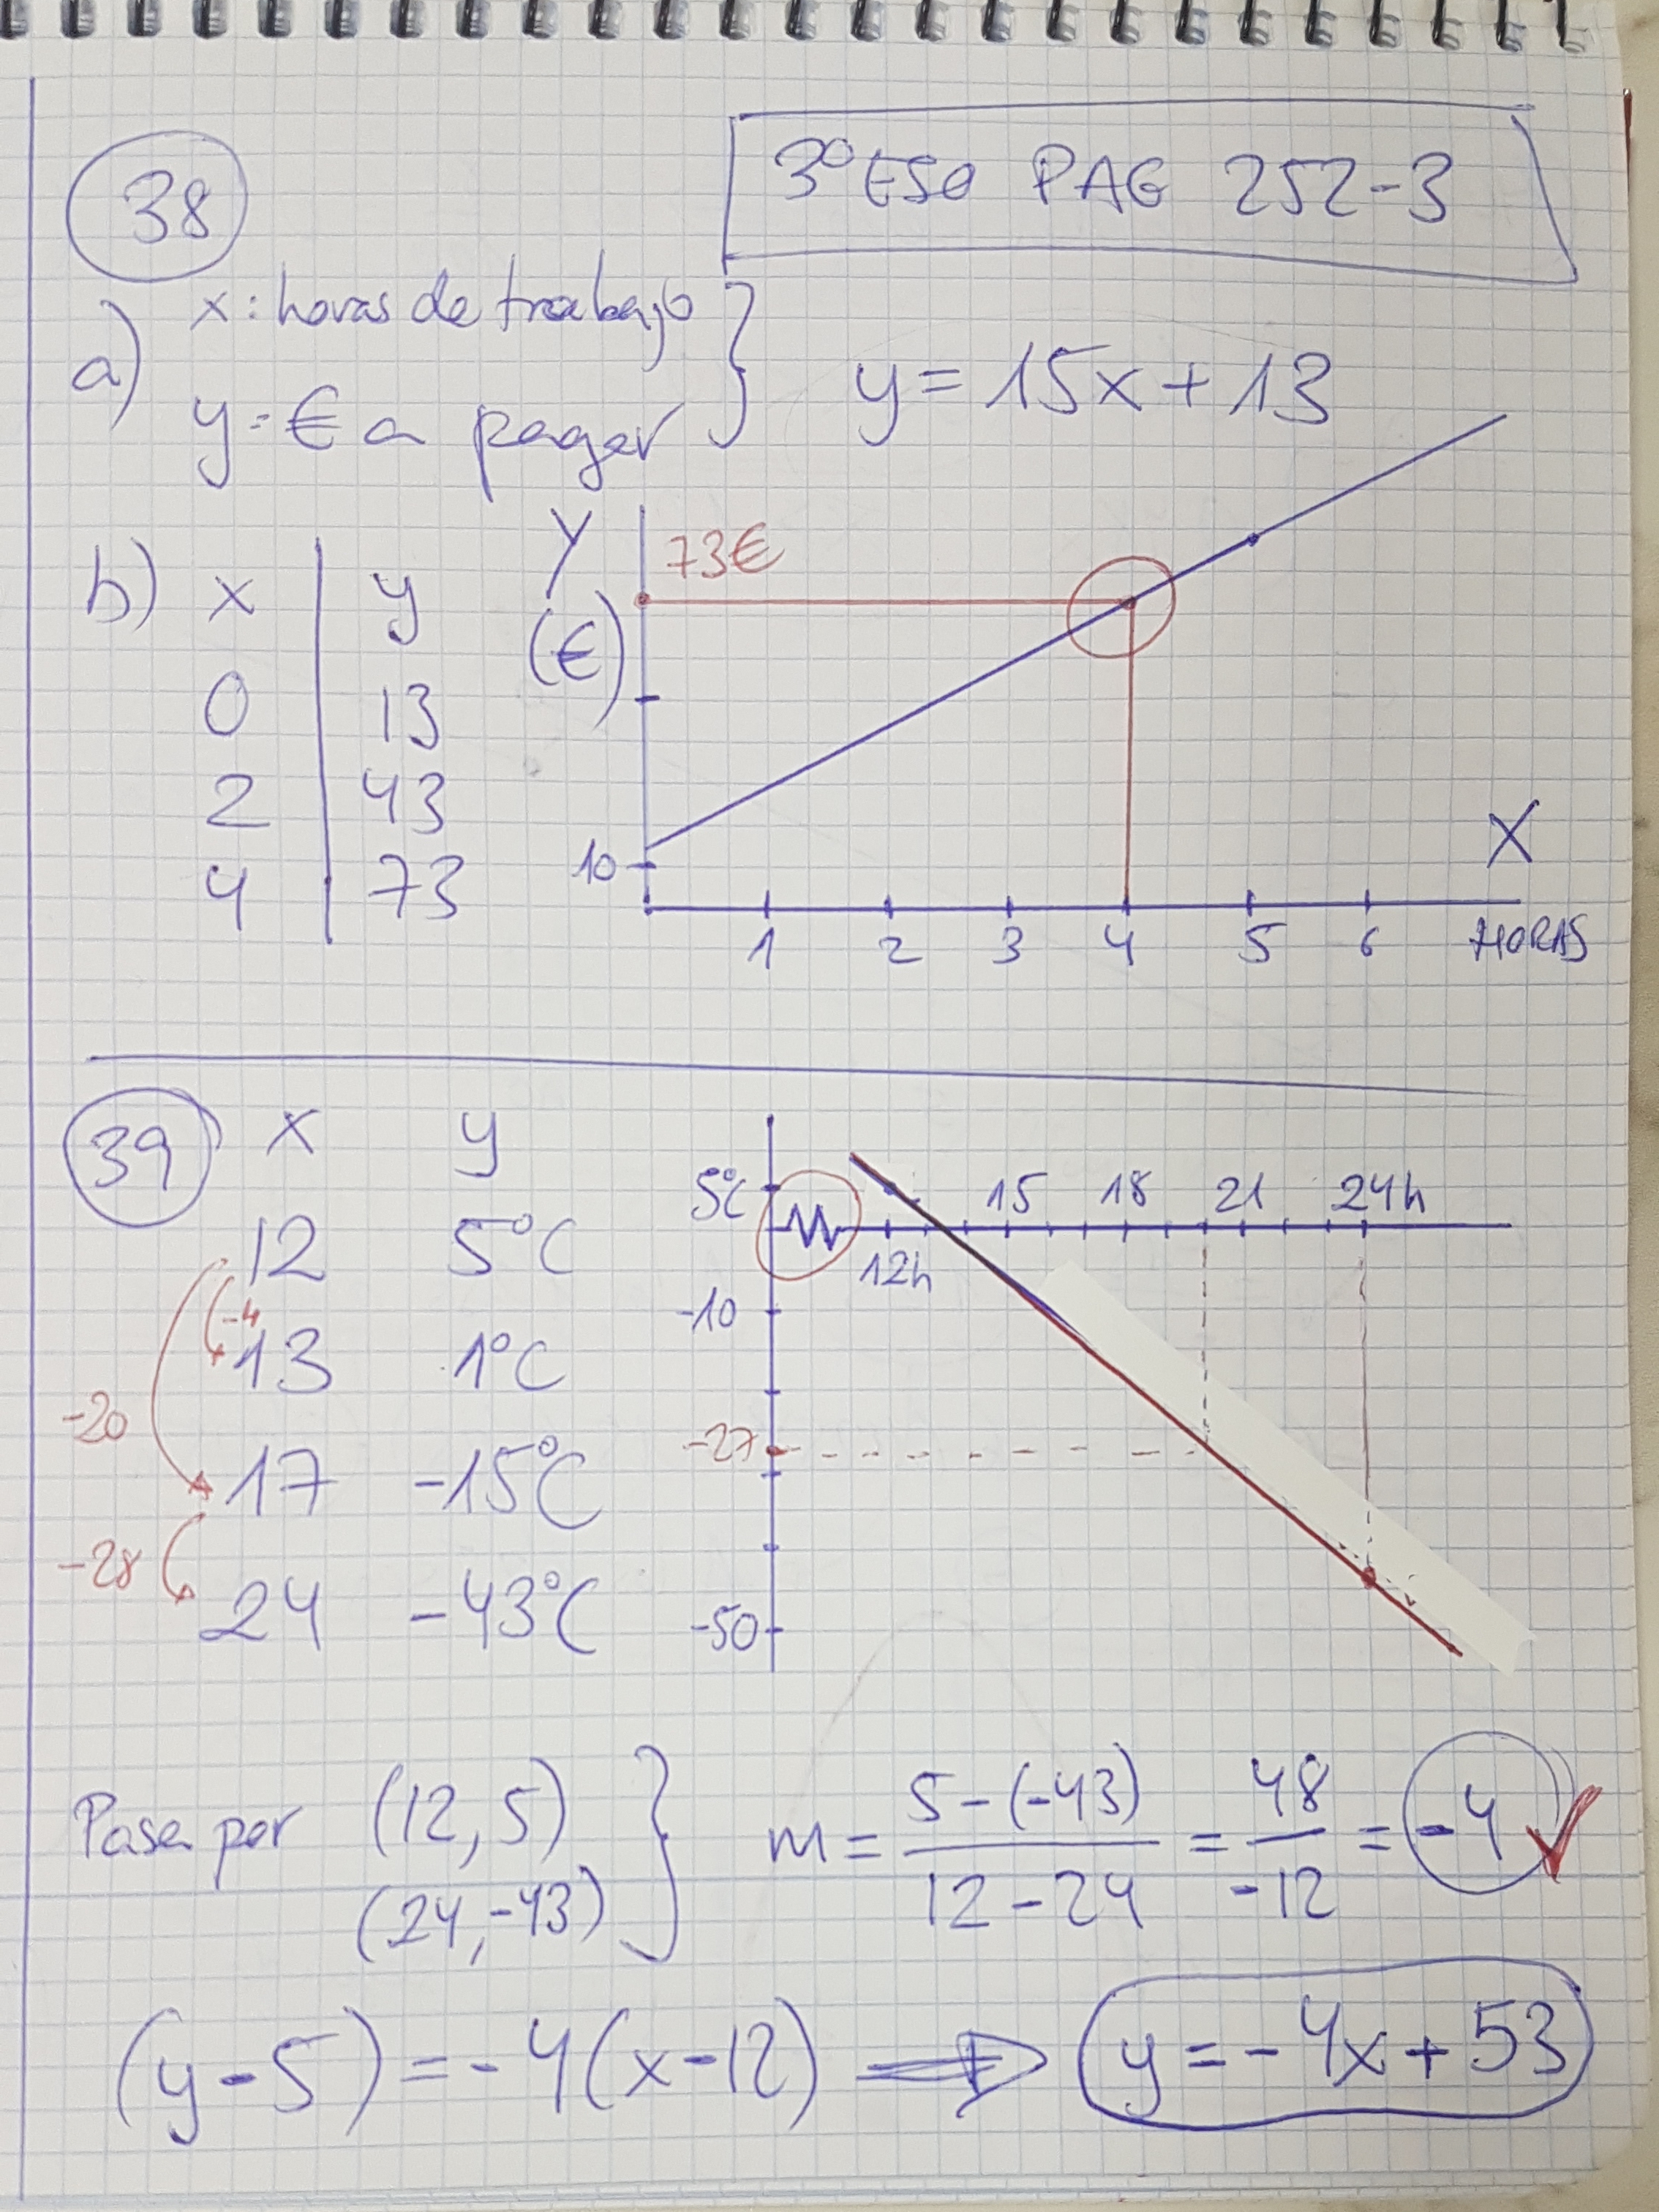 3º ESO PAG 252-3
38
a) x: horas de trabajo
y = € a pagar } y = 15x + 13
b) x | y
0 | 13
2 | 43
4 | 73
Y
(€)
73€
10
1 2 3 4 5 6 HORAS
X
39
x y
12 5ºC
-4
13 1ºC
-20
17 -15ºC
-28
24 -43ºC
5ºC
15 18 21 24h
12h
-10
-27
-50
Pasa por (12, 5)
(24, -43) } m = 5-(-43) / 12-24 = 48 / -12 = -4 ✓
(y-5) = -4(x-12) ⇒ y = -4x + 53